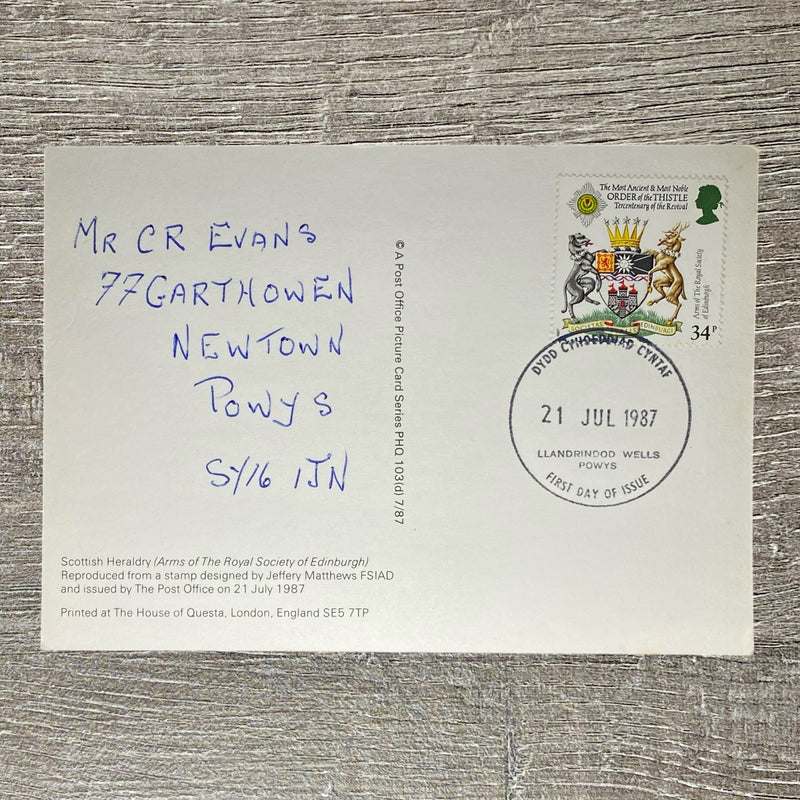 Mr CR Evans
77 Garthowen
Newtown
Powys
SY16 1JN
© A Post Office Picture Card Series PHQ 103(d) 7/87
The Most Ancient & Most Noble
ORDER of the THISTLE
Tercentenary of the Revival
Arms of The Royal Society
of Edinburgh
SOCIETAS EDINBURGI
34P
DYDD CYHOEDDIAD CYNTAF
21 JUL 1987
LLANDRINDOD WELLS
POWYS
FIRST DAY OF ISSUE
Scottish Heraldry (Arms of The Royal Society of Edinburgh)
Reproduced from a stamp designed by Jeffery Matthews FSIAD
and issued by The Post Office on 21 July 1987
Printed at The House of Questa, London, England SE5 7TP